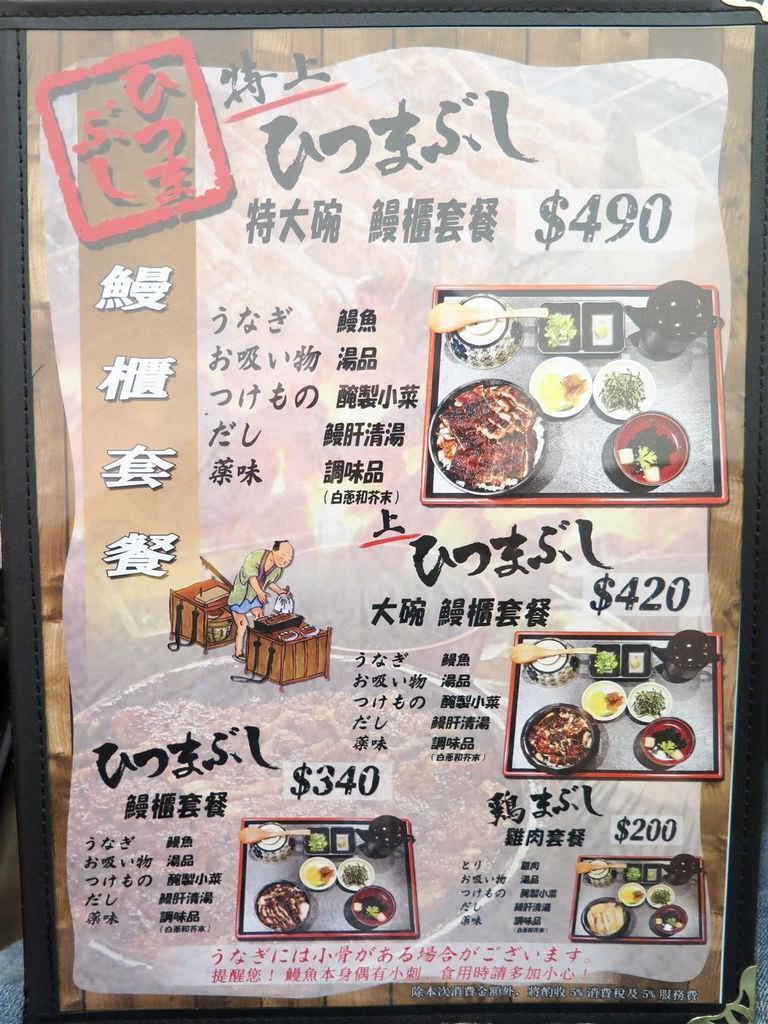 ひつまぶし
特上
ひつまぶし
特大碗 鰻櫃套餐 $490
鰻櫃套餐
うなぎ 鰻魚
お吸い物 湯品
つけもの 醃製小菜
だし 鰻肝清湯
薬味 調味品
(白蔥和芥末)
上
ひつまぶし
$420
大碗 鰻櫃套餐
うなぎ 鰻魚
お吸い物 湯品
つけもの 醃製小菜
だし 鰻肝清湯
薬味 調味品
(白蔥和芥末)
ひつまぶし
$340
鰻櫃套餐
うなぎ 鰻魚
お吸い物 湯品
つけもの 醃製小菜
だし 鰻肝清湯
薬味 調味品
(白蔥和芥末)
鶏まぶし
雞肉套餐 $200
とり 雞肉
お吸い物 湯品
つけもの 醃製小菜
だし 鰻肝清湯
薬味 調味品
(白蔥和芥末)
うなぎには小骨がある場合がございます。
提醒您！鰻魚本身偶有小刺．食用時請多加小心！
除本次消費金額外，將酌收 5% 消費稅及 5% 服務費